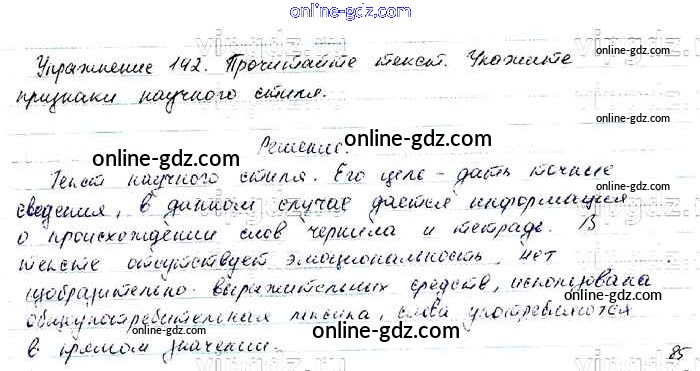 online-gdz.com
Упражнение 142. Прочитайте текст. Укажите
признаки научного стиля.
Решение.
online-gdz.com
online-gdz.com
Текст научного стиля. Его цель - дать точные
сведения, в данном случае дается информация
о происхождении слов чернила и тетрадь. В
online-gdz.com
тексте отсутствует эмоциональность, нет
изобразительно-выразительных средств, использована
online-gdz.com
общеупотребительная лексика, слова употребляются
online-gdz.com
в прямом значении.
85